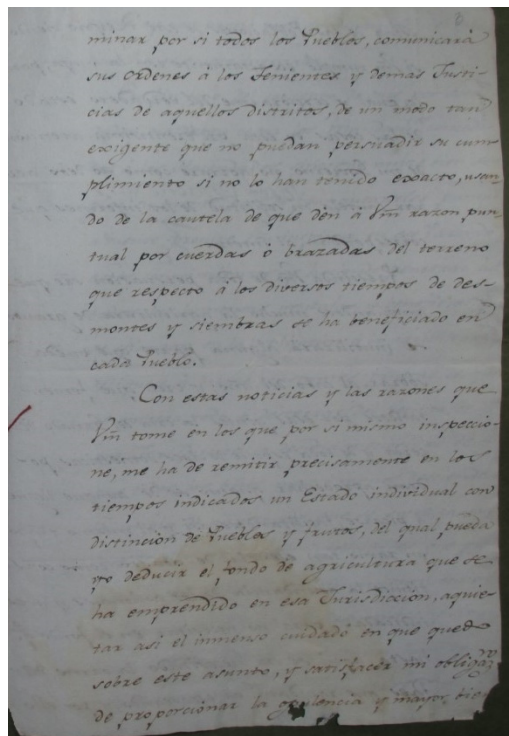 minar por si todos los Pueblos, comunicará
sus ordenes á los Tenientes y demas Justi-
cias de aquellos distritos, de un modo tan
exigente que no puedan persuadir su cum-
plimiento si no lo han tenido exacto, usan-
do de la cautela de que dén á Vm razon pun-
tual por cuerdas ó brazadas del terreno
que respecto á los diversos tiempos de des-
montes y siembras se ha beneficiado en
cada Pueblo.
Con estas noticias y las razones que
Vm tome en los que por si mismo inspeccio-
ne, me ha de remitir precisamente en los
tiempos indicados un Estado individual con
distincion de Pueblos y frutos, del qual pueda
yo deducir el fondo de agricultura que se
ha emprendido en esa Jurisdiccion, aquie-
tar asi el inmenso cuidado en que quedo
sobre este asunto, y satisfacer mi obligaz.
de proporcionar la opulencia y mayor bien